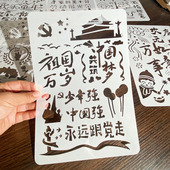 祖国
万岁
共筑
中国梦
少年强
中国强
永远跟党走
万事